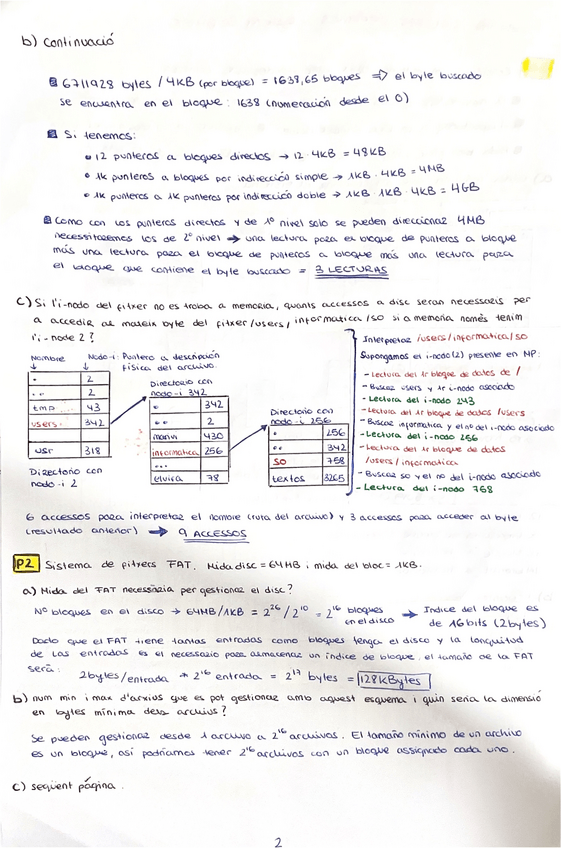 b) Continuació
6711928 bytes / 4KB (por bloque) = 1638,65 bloques ⇒ el byte buscado
se encuentra en el bloque: 1638 (numeración desde el 0)
Si tenemos:
• 12 punteros a bloques directos → 12 · 4KB = 48KB
• 1k punteros a bloques por indirección simple → 1KB · 4KB = 4MB
• 1k punteros a 1k punteros por indirección doble → 1KB · 1KB · 4KB = 4GB
Como con los punteros directos y de 1º nivel solo se pueden direccionar 4MB
necesitaremos los de 2º nivel → una lectura para el bloque de punteros a bloque
más una lectura para el bloque de punteros a bloque más una lectura para
el bloque que contiene el byte buscado = 3 LECTURAS
c) Si l'i-nodo del fitxer no es troba a memoria, quants accessos a disc seran necessaris per
a accedir al mateix byte del fitxer /users/informatica/so si a memoria només tenim
l'i-node 2?
Nombre
Nodo-i: Puntero a descripción física del archivo.
. 2
.. 2
tmp 43
users 342
usr 318
Directorio con
nodo-i 2
Directorio con
nodo-i 342
. 342
.. 2
manu 430
informatica 256
...
elvira 78
Directorio con
nodo-i 256
. 256
.. 342
so 758
textos 3265
Interpretar /users/informatica/so
Supongamos el i-nodo(2) presente en MP:
- Lectura del 1r bloque de datos de /
- Buscar users y 1r i-nodo asociado
- Lectura del i-nodo 243
- Lectura del 1r bloque de datos /users
- Buscar informatica y el nº del i-nodo asociado
- Lectura del i-nodo 256
- Lectura del 1r bloque de datos
/users/informatica
- Buscar so y el no del i-nodo asociado
- Lectura del i-nodo 768
6 accessos para interpretar el nombre (ruta del archivo) y 3 accessos para acceder al byte
(resultado anterior) → 9 ACCESSOS
P2 Sistema de fitxers FAT. Mida disc = 64MB i mida del bloc = 1KB.
a) Mida del FAT necessària per gestionar el disc?
Nº bloques en el disco → 64MB/1KB = 2^26 / 2^10 = 2^16 bloques en el disco → Indice del bloque es
de 16bits (2bytes)
Dado que el FAT tiene tantas entradas como bloques tenga el disco y la longitud
de las entradas es el necesario para almacenar un indice de bloque, el tamaño de la FAT
será:
2bytes/entrada * 2^16 entrada = 2^17 bytes = 128KBytes
b) num min i max d'arxius que es pot gestionar amb aquest esquema i quin seria la dimensió
en bytes mínima dels arxius?
Se pueden gestionar desde 1 archivo a 2^16 archivos. El tamaño mínimo de un archivo
es un bloque, así podríamos tener 2^16 archivos con un bloque assignado cada uno.
c) següent pàgina.
2